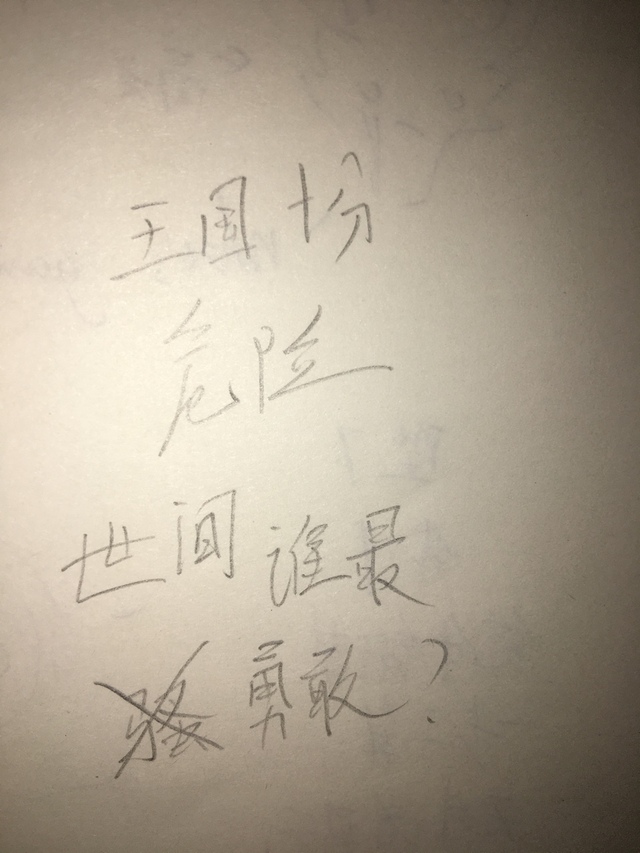 王国十分
危险
世间谁最
勇敢?